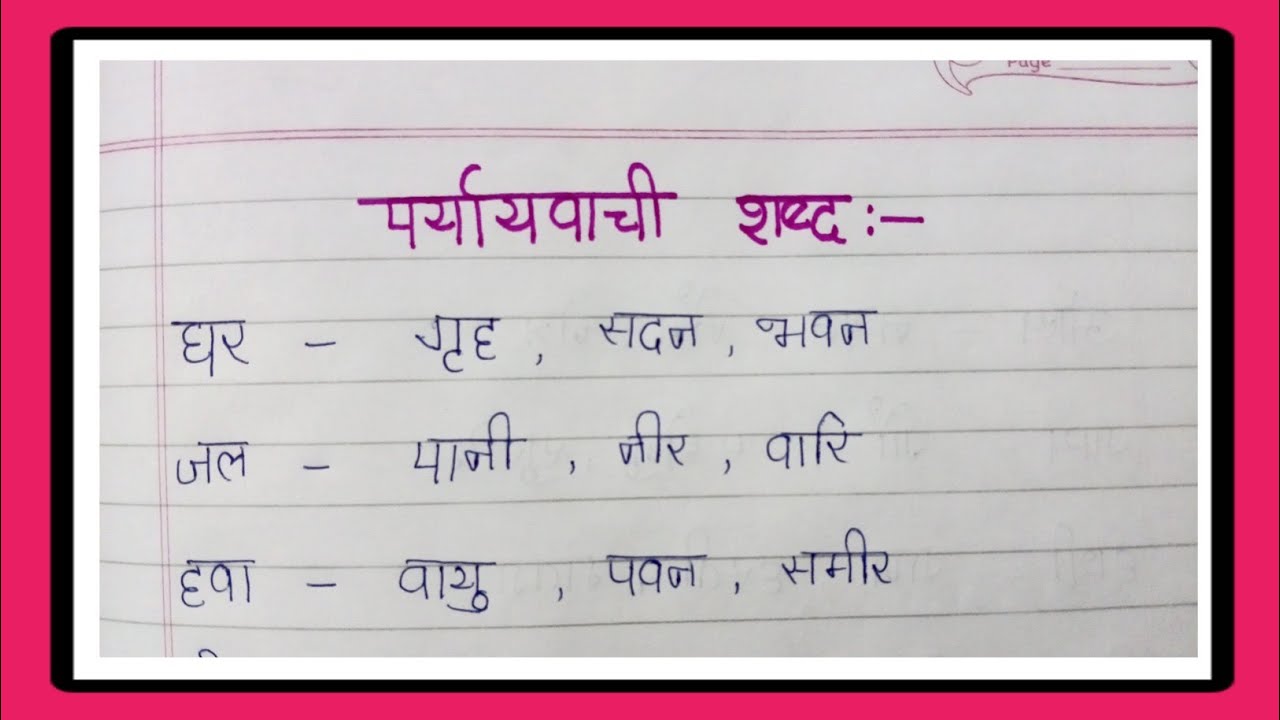 Page
पर्यायवाची शब्द :-
घर - गृह , सदन , भवन
जल - पानी , नीर , वारि
हवा - वायु , पवन , समीर